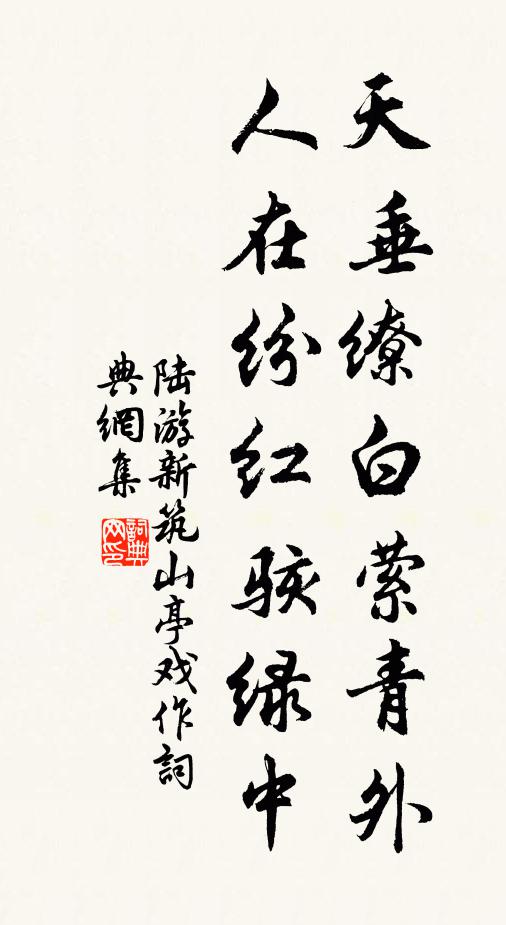 天垂缭白萦青外
人在纷红骇绿中
陆游新筑山亭戏作詞
典網集
詞典
网印